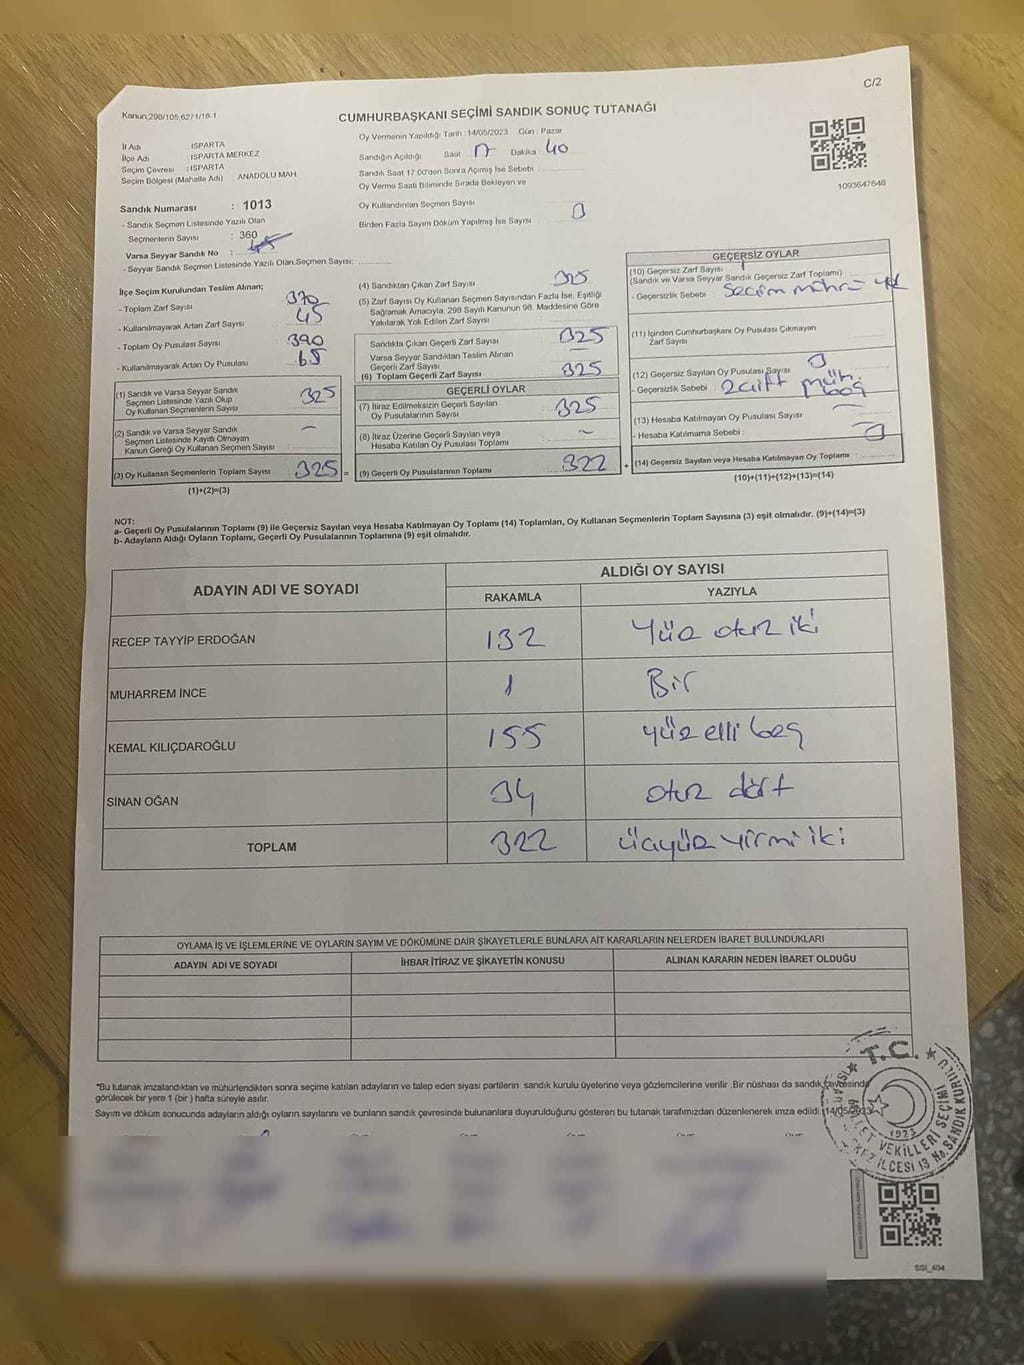 C/2
Kanun,298/105,6271/16-1
CUMHURBAŞKANI SEÇİMİ SANDIK SONUÇ TUTANAĞI
İl Adı : ISPARTA
İlçe Adı : ISPARTA MERKEZ
Seçim Çevresi : ISPARTA
Seçim Bölgesi (Mahalle Adı) : ANADOLU MAH.
Oy Vermenin Yapıldığı Tarih : 14/05/2023 Gün : Pazar
Sandığın Açıldığı Saat 17 Dakika 40
Sandık Saat 17:00'den Sonra Açılmış İse Sebebi :
Oy Verme Saati Bitiminde Sırada Bekleyen ve
Oy Kullandırılan Seçmen Sayısı
Birden Fazla Sayım Döküm Yapılmış İse Sayısı
1093647648
Sandık Numarası : 1013
- Sandık Seçmen Listesinde Yazılı Olan
Seçmenlerin Sayısı : 360
Varsa Seyyar Sandık No :
- Seyyar Sandık Seçmen Listesinde Yazılı Olan Seçmen Sayısı:
İlçe Seçim Kurulundan Teslim Alınan;
- Toplam Zarf Sayısı 370
- Kullanılmayarak Artan Zarf Sayısı 45
- Toplam Oy Pusulası Sayısı 390
- Kullanılmayarak Artan Oy Pusulası 65
(1) Sandık ve Varsa Seyyar Sandık
Seçmen Listesinde Yazılı Olup
Oy Kullanan Seçmenlerin Sayısı 325
(2) Sandık ve Varsa Seyyar Sandık
Seçmen Listesinde Kayıtlı Olmayan
Kanun Gereği Oy Kullanan Seçmen Sayısı –
(3) Oy Kullanan Seçmenlerin Toplam Sayısı 325 =
(1)+(2)=(3)
(4) Sandıktan Çıkan Zarf Sayısı 325
(5) Zarf Sayısı Oy Kullanan Seçmen Sayısından Fazla İse, Eşitliği
Sağlamak Amacıyla, 298 Sayılı Kanunun 98. Maddesine Göre
Yakılarak Yok Edilen Zarf Sayısı
Sandıkta Çıkan Geçerli Zarf Sayısı 325
Varsa Seyyar Sandıktan Teslim Alınan
Geçerli Zarf Sayısı –
(6) Toplam Geçerli Zarf Sayısı 325
GEÇERLİ OYLAR
(7) İtiraz Edilmeksizin Geçerli Sayılan
Oy Pusulalarının Sayısı 325
(8) İtiraz Üzerine Geçerli Sayılan veya
Hesaba Katılan Oy Pusulası Toplamı –
(9) Geçerli Oy Pusulalarının Toplamı 322 +
GEÇERSİZ OYLAR
(10) Geçersiz Zarf Sayısı 1
(Sandık ve Varsa Seyyar Sandık Geçersiz Zarf Toplamı)
- Geçersizlik Sebebi : Seçim
(11) İçinden Cumhurbaşkanı Oy Pusulası Çıkmayan
Zarf Sayısı
(12) Geçersiz Sayılan Oy Pusulası Sayısı
- Geçersizlik Sebebi : 2 çift müh.
(13) Hesaba Katılmayan Oy Pusulası Sayısı –
- Hesaba Katılmama Sebebi :
(14) Geçersiz Sayılan veya Hesaba Katılmayan Oy Toplamı
(10)+(11)+(12)+(13)=(14)
NOT:
a- Geçerli Oy Pusulalarının Toplamı (9) ile Geçersiz Sayılan veya Hesaba Katılmayan Oy Toplamı (14) Toplamları, Oy Kullanan Seçmenlerin Toplam Sayısına (3) eşit olmalıdır. (9)+(14)=(3)
b- Adayların Aldığı Oyların Toplamı, Geçerli Oy Pusulalarının Toplamına (9) eşit olmalıdır.
ADAYIN ADI VE SOYADI
ALDIĞI OY SAYISI
RAKAMLA YAZIYLA
RECEP TAYYİP ERDOĞAN 132 Yüz otuz iki
MUHARREM İNCE 1 Bir
KEMAL KILIÇDAROĞLU 155 yüz elli beş
SİNAN OĞAN 34 otuz dört
TOPLAM 322 üçyüz yirmi iki
OYLAMA İŞ VE İŞLEMLERİNE VE OYLARIN SAYIM VE DÖKÜMÜNE DAİR ŞİKAYETLERLE BUNLARA AİT KARARLARIN NELERDEN İBARET BULUNDUKLARI
ADAYIN ADI VE SOYADI İHBAR İTİRAZ VE ŞİKAYETİN KONUSU ALINAN KARARIN NEDEN İBARET OLDUĞU
*Bu tutanak imzalandıktan ve mühürlendikten sonra seçime katılan adayların ve talep eden siyasi partilerin sandık kurulu üyelerine veya gözlemcilerine verilir .Bir nüshası da sandık çevresinde
görülecek bir yere 1 (bir ) hafta süreyle asılır.
Sayım ve döküm sonucunda adayların aldığı oyların sayılarını ve bunların sandık çevresinde bulunanlara duyurulduğunu gösteren bu tutanak tarafımızdan düzenlenerek imza edildi .14/05/2023
T.C.
1923
SSI_404